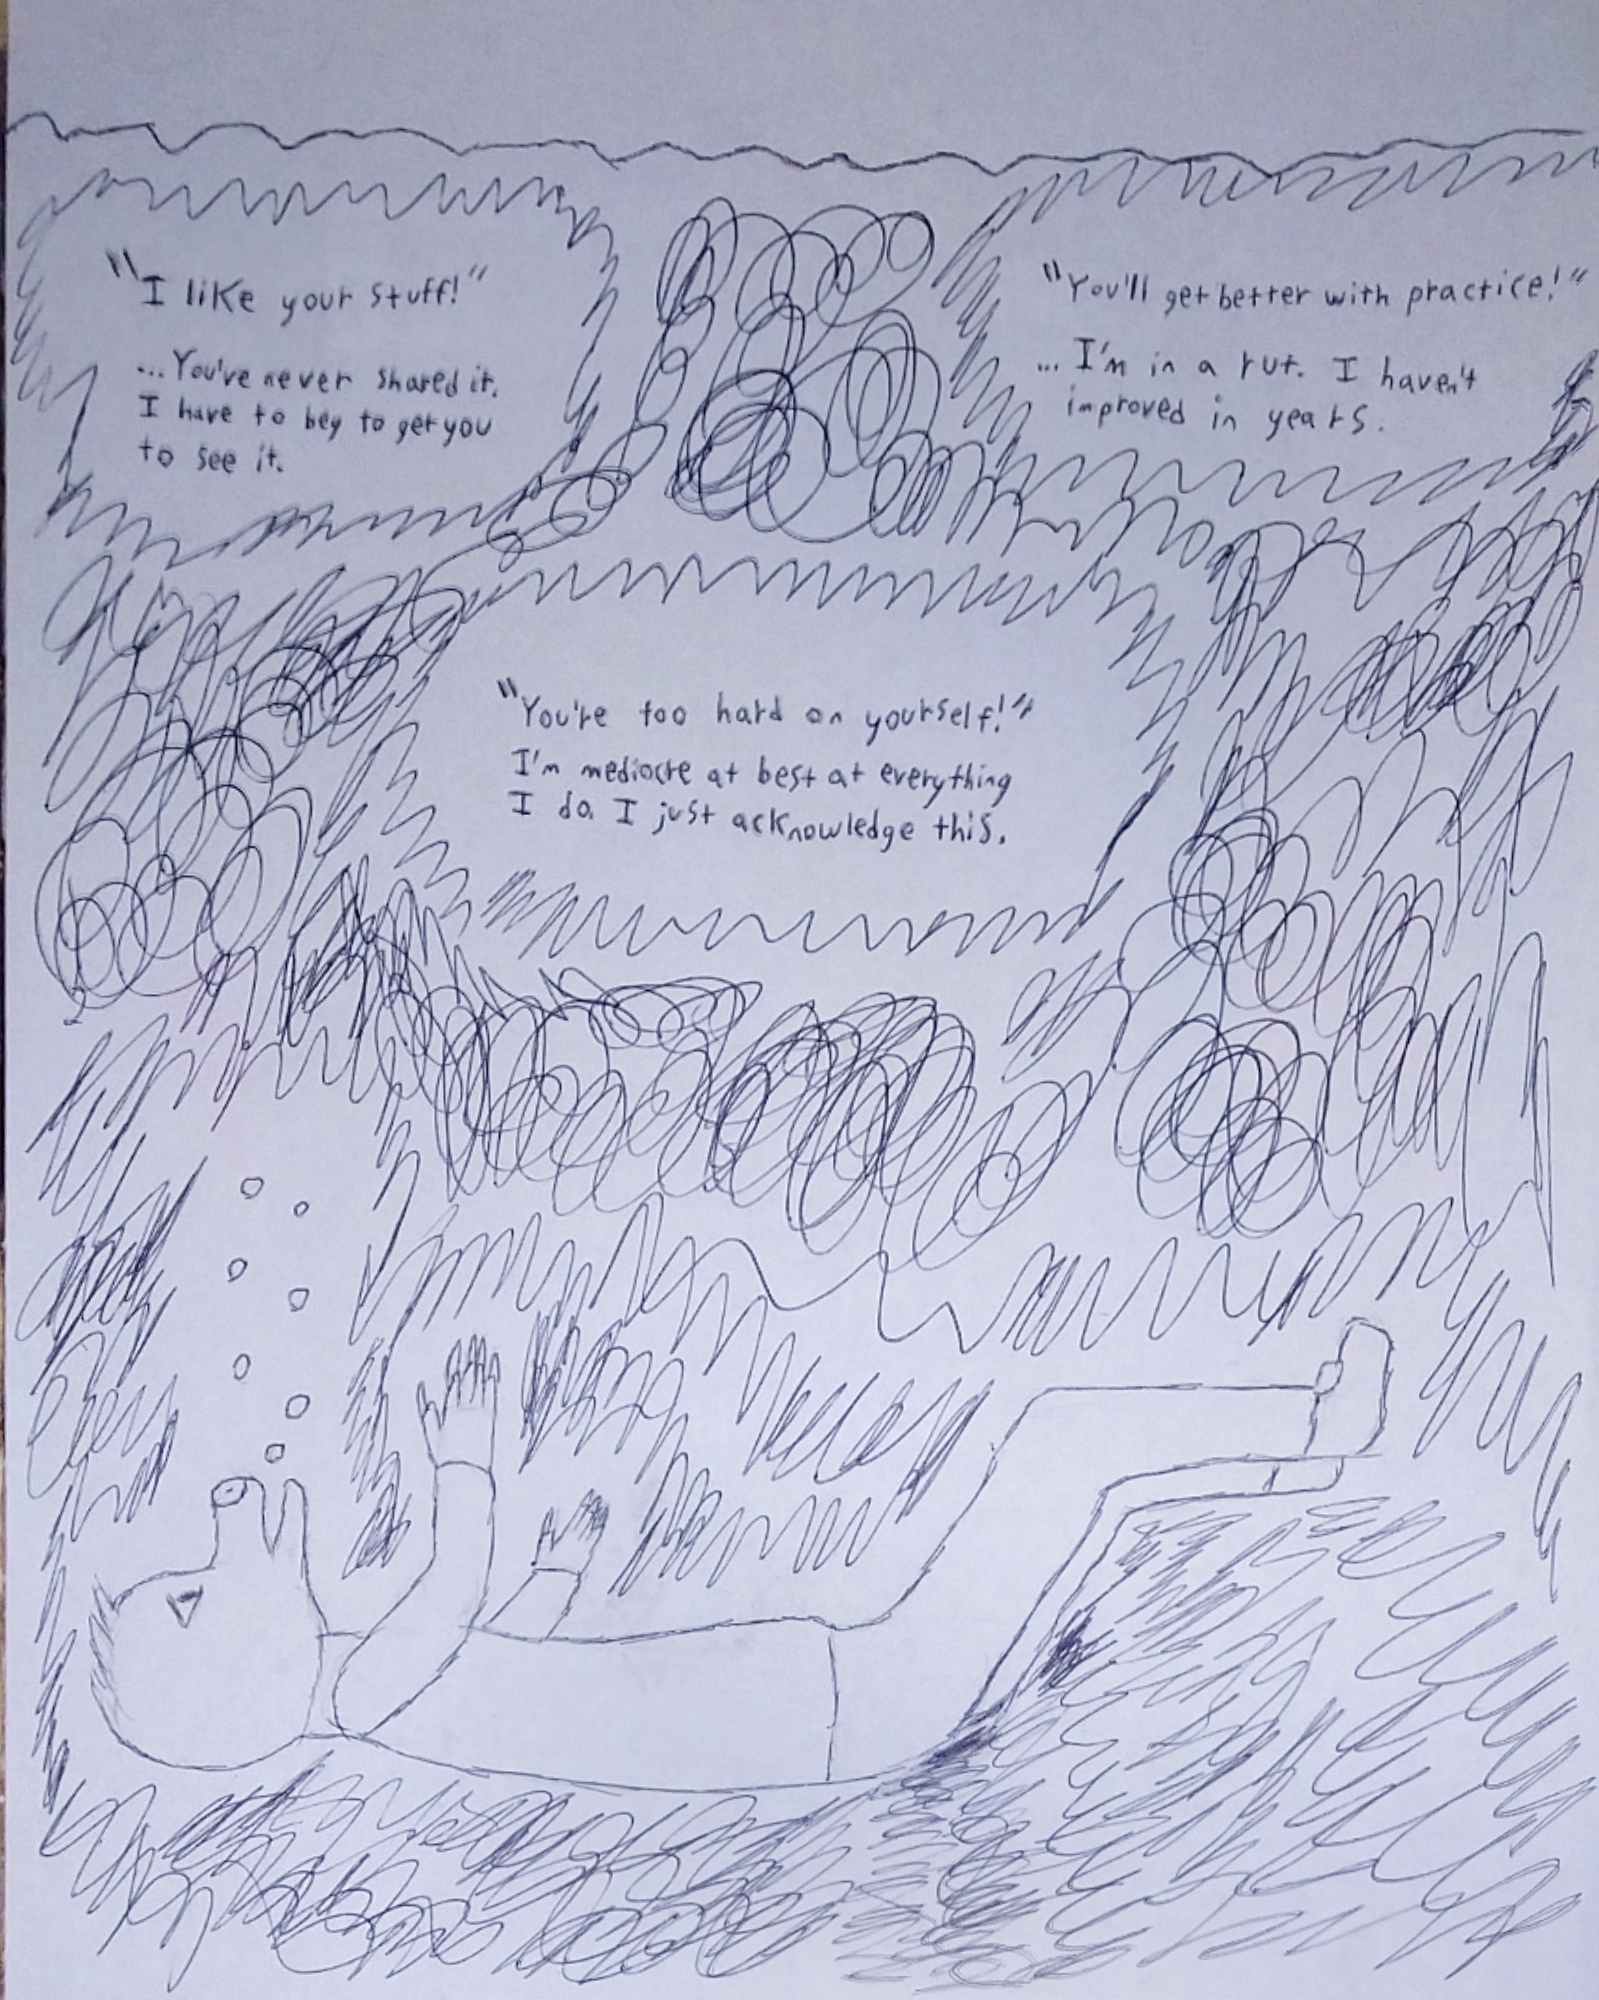 "I like your stuff!"
...You've never shared it.
I have to beg to get you
to see it.
"You'll get better with practice!"
... I'm in a rut. I haven't
improved in years.
"You're too hard on yourself!"
I'm mediocre at best at everything
I do. I just acknowledge this.